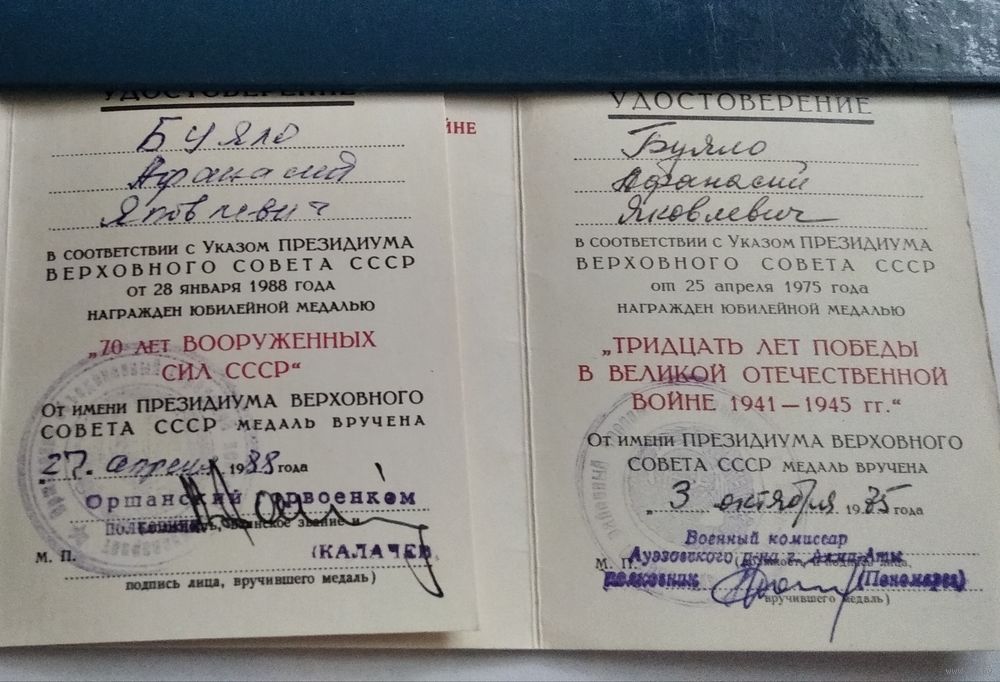 УДОСТОВЕРЕНИЕ
Буяло
Афанасий
Яковлевич
в соответствии с Указом ПРЕЗИДИУМА
ВЕРХОВНОГО СОВЕТА СССР
от 28 января 1988 года
награжден юбилейной медалью
„70 лет ВООРУЖЕННЫХ
СИЛ СССР“
От имени ПРЕЗИДИУМА ВЕРХОВНОГО
СОВЕТА СССР медаль вручена
„27. апреля 1988 года
Оршанский орвоенком
полковник
(КАЛАЧЕВ
М. П.
подпись лица, вручившего медаль)
ЙНЕ
УДОСТОВЕРЕНИЕ
Буяло
Афанасий
Яковлевич
в соответствии с Указом ПРЕЗИДИУМА
ВЕРХОВНОГО СОВЕТА СССР
от 25 апреля 1975 года
награжден юбилейной медалью
„ТРИДЦАТЬ ЛЕТ ПОБЕДЫ
В ВЕЛИКОЙ ОТЕЧЕСТВЕННОЙ
ВОЙНЕ 1941—1945 гг.“
От имени ПРЕЗИДИУМА ВЕРХОВНОГО
СОВЕТА СССР медаль вручена
„ 3 октября 1975 года
Военный комиссар
Ауэзовского р-на г. Алма-Аты
М. П.
полковник (Пономарев)
вручившего медаль)